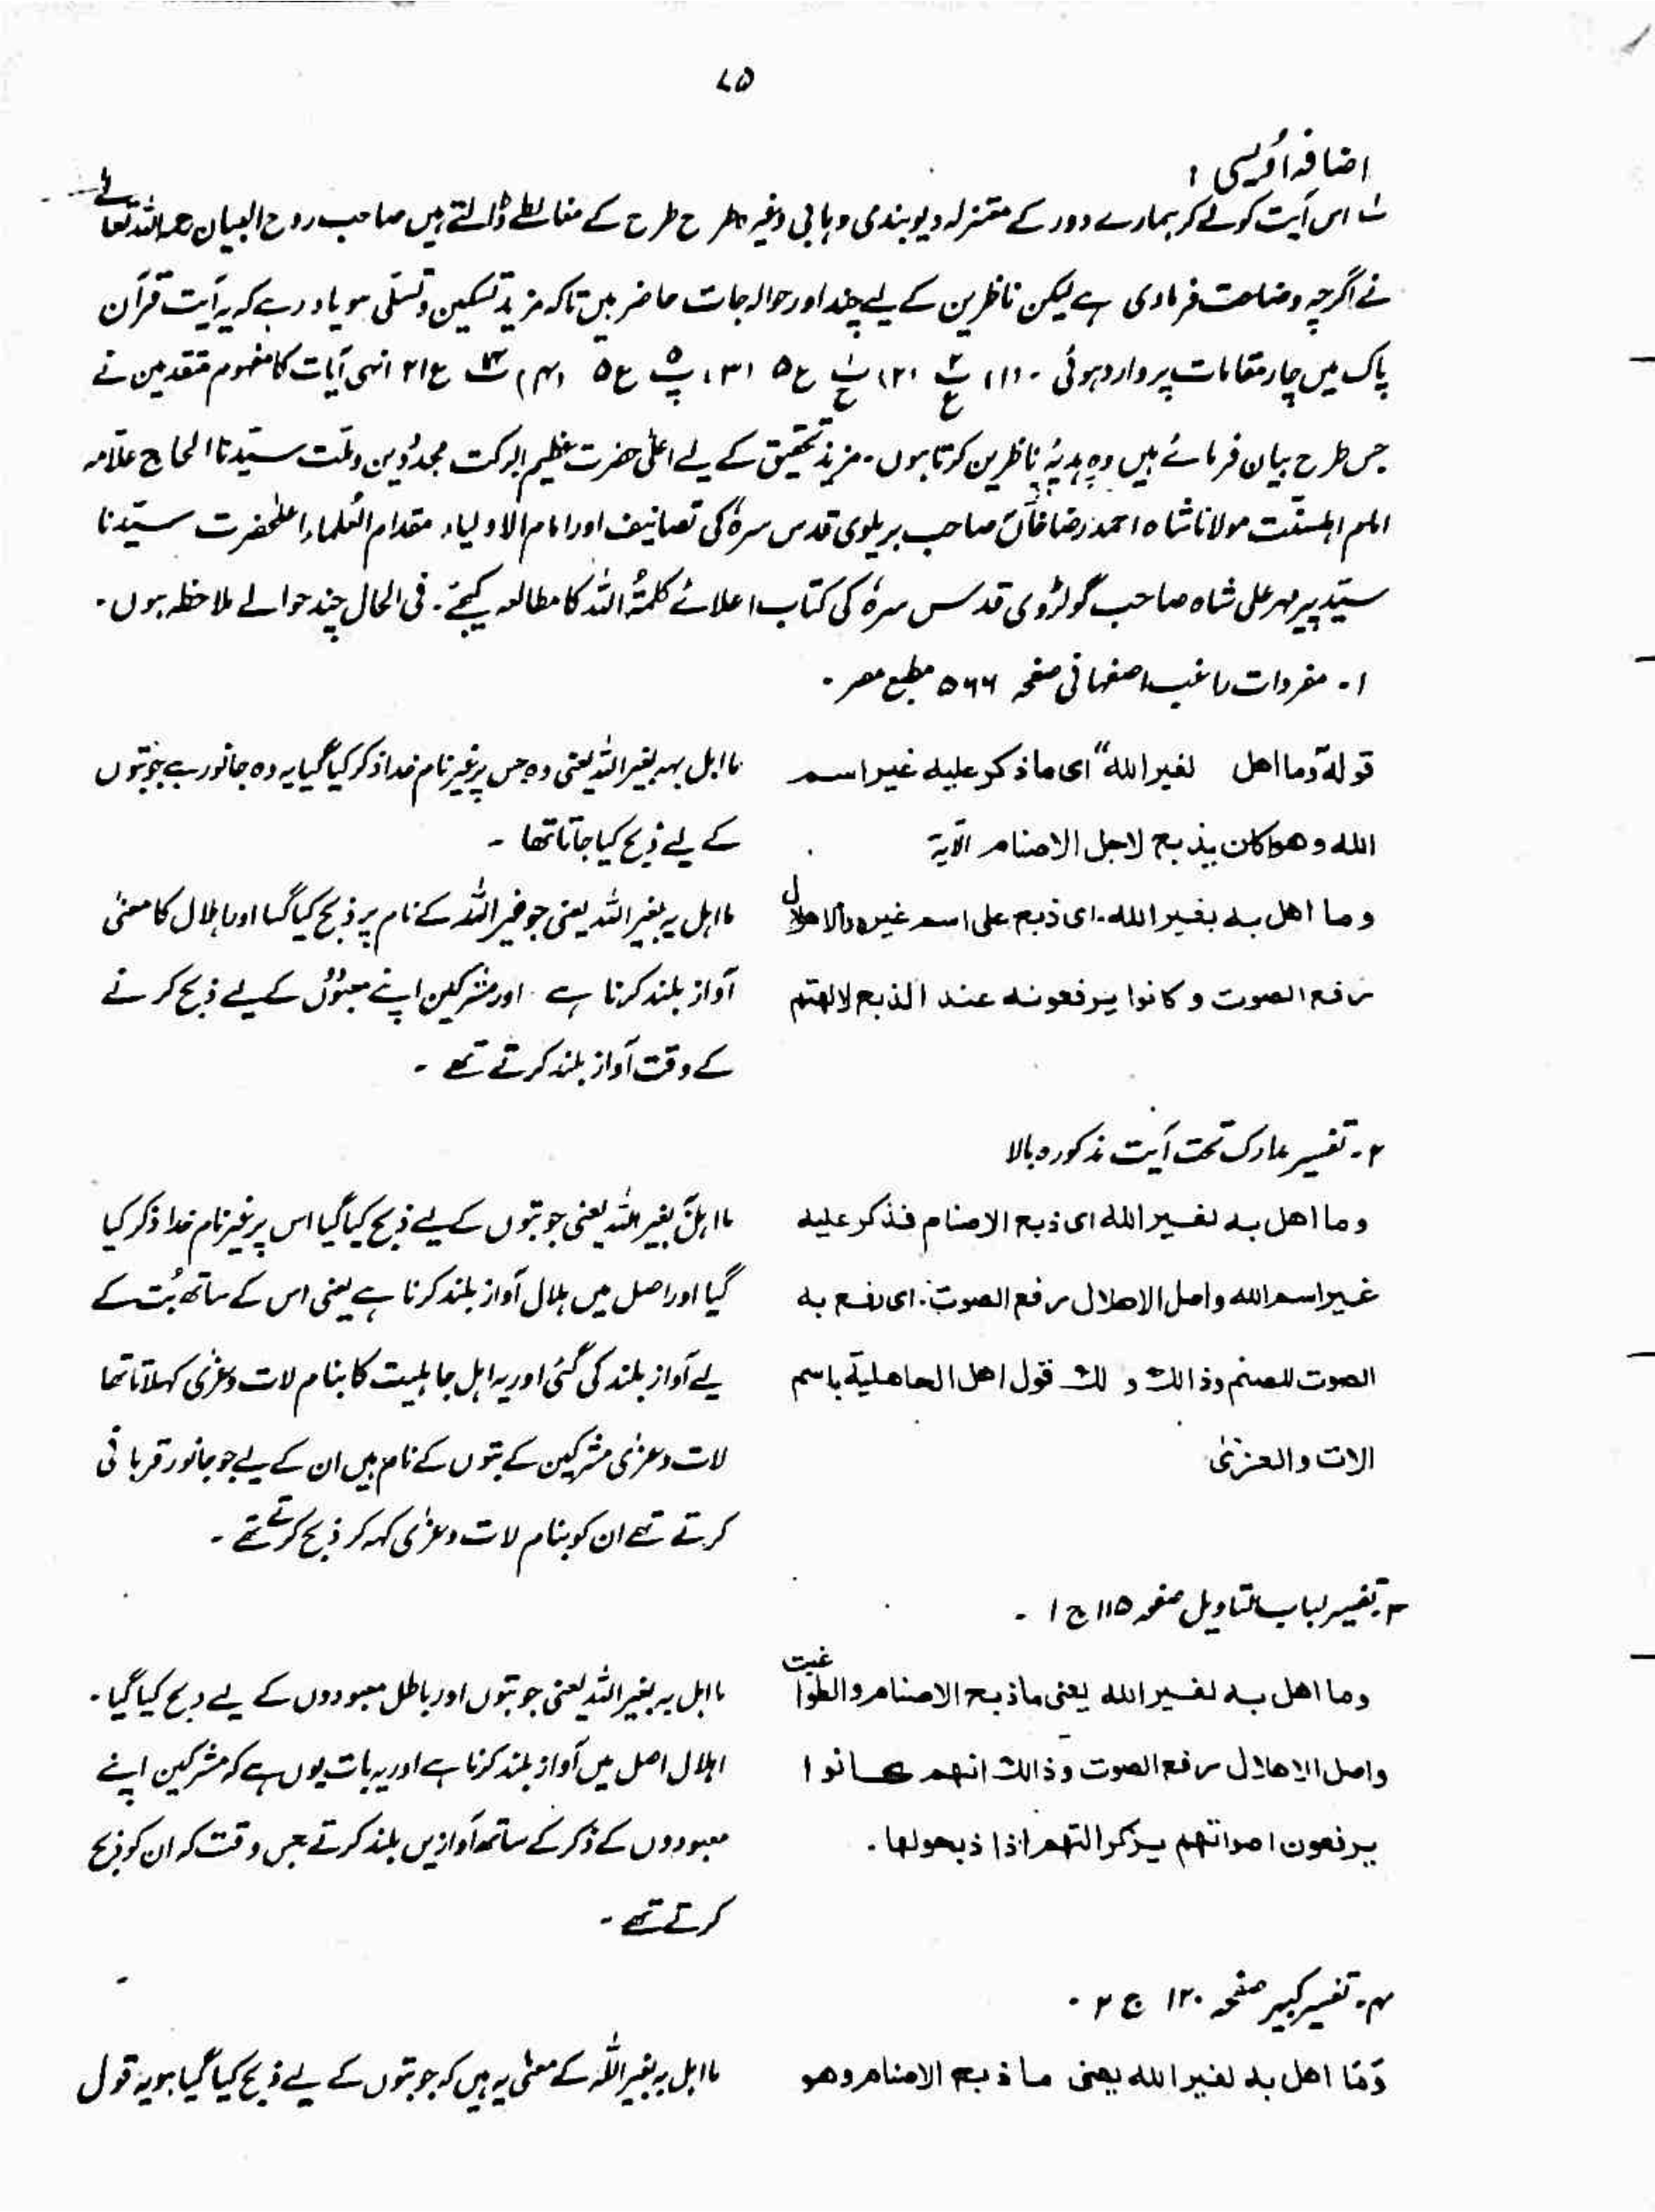 ٧٥
اضافہ اُویسی :
ف اس آیت کو لے کر ہمارے دور کے معتزلہ دیوبندی وہابی وغیرہ طرح طرح کے مغالطے ڈالتے ہیں صاحب روح البیان رحمہ اللہ تعالٰے
نے اگرچہ وضاحت فرمادی ہے لیکن ناظرین کے لیے چند اور حوالہ جات حاضر ہیں تاکہ مزید تسکین و تسلّی ہو یاد رہے کہ یہ آیت قرآن
پاک میں چار مقامات پر وارد ہوئی ۔ (١) پ٢ ع (٢) پ ع ٥ (٣) پ ع ٥ (٤) پ ع ٢١ انہی آیات کا مفہوم متقدمین نے
جس طرح بیان فرمائے ہیں وہ ہدیۂ ناظرین کرتا ہوں ۔ مزید تحقیق کے لیے اعلیٰ حضرت عظیم البرکت مجدد دین و ملّت سیّدنا الحاج علّامہ
امام اہلسنّت مولانا شاہ احمد رضا خاں صاحب بریلوی قدس سرہٗ کی تصانیف اور امام الاولیاء مقدام العُلماء اعلٰحضرت سیّدنا
سیّد پیر مہر علی شاہ صاحب گولڑوی قدس سرہٗ کی کتاب اعلائے کلمۃُ اللہ کا مطالعہ کیجئے ۔ فی الحال چند حوالے ملاحظہ ہوں ۔
١ ۔ مفردات راغب اصفہانی صفحہ ٥٦٦ مطبع مصر ۔
قولہ وما اهل لغير الله" اى ماذكر عليه غير اسم
الله وهو كان يذبح لاجل الاصنام الآية
وما اهل به بغير الله. اى ذبح على اسم غيره والاهلال
رفع الصوت و كانوا يرفعونه عند الذبح لالهتم
ما اہل بہ بغیر اللہ یعنی وہ جس پر غیر نام خدا ذکر کیا گیا یہ وہ جانور ہے جو بتوں
کے لیے ذبح کیا جاتا تھا ۔
ما اہل بہ بغیر اللہ یعنی جو غیر اللہ کے نام پر ذبح کیا گیا اور اہلال کا معنیٰ
آواز بلند کرنا ہے ۔ اور مشرکین اپنے معبودوں کے لیے ذبح کرنے
کے وقت آواز بلند کرتے تھے ۔
٢ ۔ تفسیر مدارک تحت آیت مذکورہ بالا
وما اهل به لغير الله اى ذبح الاصنام فذكر عليه
غير اسم الله واصل الاهلال رفع الصوت. اى رفع به
الصوت للصنم وذالك و لك قول اهل الجاهلية باسم
الات والعزىٰ
ما اہلّ بغیر اللہ یعنی جو بتوں کے لیے ذبح کیا گیا اس پر غیر نام خدا ذکر کیا
گیا اور اصل میں ہلال آواز بلند کرنا ہے یعنی اس کے ساتھ بُت کے
لیے آواز بلند کی گئی اور یہ اہل جاہلیت کا بنام لات و عزّٰی کہلاتا تھا
لات و عزٰی مشرکین کے بتوں کے نام ہیں ان کے لیے جو جانور قربانی
کرتے تھے ان کو بنام لات و عزٰی کہہ کر ذبح کرتے تھے ۔
٣ ۔ تفسیر لباب التاویل صفحہ ١١٥ ج ١ ۔
وما اهل به لغير الله يعنى ما ذبح الاصنام والطواغيت
واصل الاهلال رفع الصوت وذالك انهم كانوا
يرفعون اصواتهم يزكر التهم اذا ذبحولها .
ما اہل بہ بغیر اللہ یعنی جو بتوں اور باطل معبودوں کے لیے ذبح کیا گیا ۔
اہلال اصل میں آواز بلند کرنا ہے اور یہ بات یوں ہے کہ مشرکین اپنے
معبودوں کے ذکر کے ساتھ آوازیں بلند کرتے جس وقت کہ ان کو ذبح
کرتے تھے ۔
٤ ۔ تفسیر کبیر صفحہ ١٢٠ ج ٢ ۔
وَمَا اهل به لغير الله يعنى ما ذبح الاصنام وهو
ما اہل بہ بغیر اللہ کے معنٰی یہ ہیں کہ جو بتوں کے لیے ذبح کیا گیا ہو یہ قول